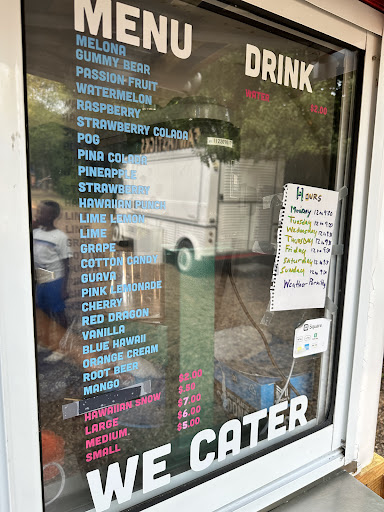 MENU
MELONA
GUMMY BEAR
PASSION-FRUIT
WATERMELON
RASPBERRY
STRAWBERRY COLADA
POG
PINA COLADA
PINEAPPLE
STRAWBERRY
HAWAIIAN PUNCH
LIME LEMON
LIME
GRAPE
COTTON CANDY
GUAVA
PINK LEMONADE
CHERRY
RED DRAGON
VANILLA
BLUE HAWAII
ORANGE CREAM
ROOT BEER
MANGO
HAWAIIAN SNOW
LARGE $7.00
MEDIUM. $6.00
SMALL $5.00
DRINK
WATER $2.00
Hours
Monday
Tuesday
Wednesday
Thursday
Friday
Saturday
Sunday
Weather
Square
WE CATER